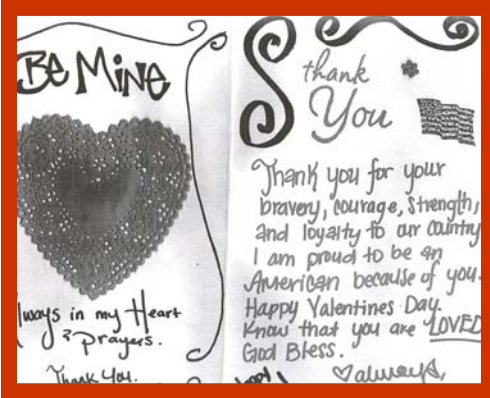 Be Mine
Always in my Heart
& Prayers.
Thank You.
thank
You
Thank you for your
bravery, courage, strength,
and loyalty to our country
I am proud to be an
American because of you.
Happy Valentines Day.
Know that you are LOVED
God Bless.
♡ always,
Happy